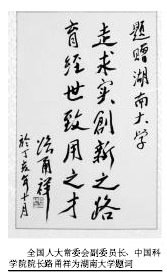 题赠湖南大学
走求实创新之路
育经世致用之才
路甬祥
於丁亥年十月
全国人大常委会副委员长、中国科
学院院长路甬祥为湖南大学题词